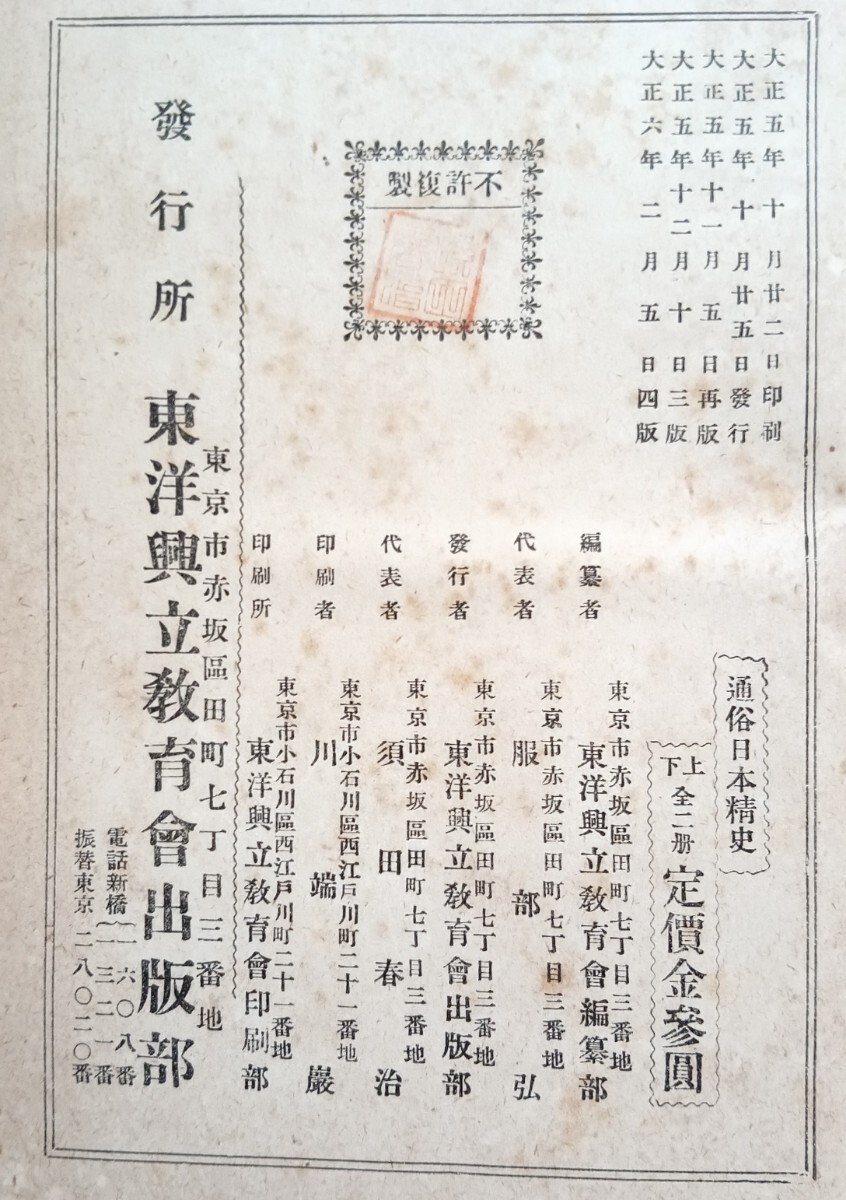 大正五年十月廿二日印刷
大正五年十月廿五日發行
大正五年十一月五日再版
大正五年十二月十日三版
大正六年二月五日四版
不許復製
通俗日本精史
上下全二册定價金參圓
編纂者
東京市赤坂區田町七丁目三番地
東洋興立敎育會編纂部
代表者
東京市赤坂區田町七丁目三番地
服部弘
發行者
東京市赤坂區田町七丁目三番地
東洋興立敎育會出版部
代表者
東京市赤坂區田町七丁目三番地
須田春治
印刷者
東京市小石川區西江戸川町二十一番地
川端巖
印刷所
東京市小石川區西江戸川町二十一番地
東洋興立敎育會印刷部
東京市赤坂區田町七丁目三番地
發行所 東洋興立敎育會出版部
電話新橋 一六〇八番
一三二一番
振替東京二八〇二〇番